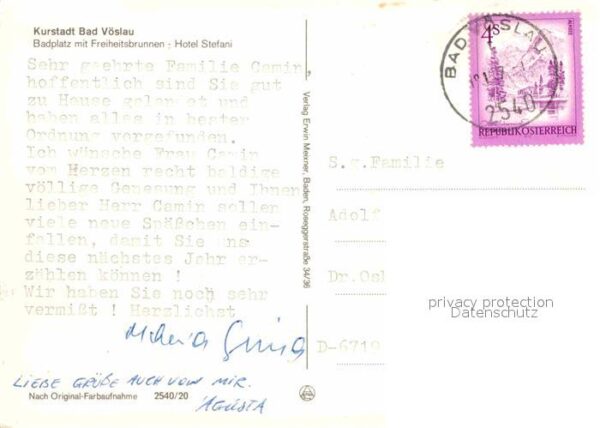 Kurstadt Bad Vöslau
Badplatz mit Freiheitsbrunnen ; Hotel Stefani
Sehr geehrte Familie Camin,
hoffentlich sind Sie gut
zu Hause gelandet und
haben alles in bester
Ordnung vorgefunden.
Ich wünsche Frau Camin
vom Herzen recht baldige
völlige Genesung und Ihnen
lieber Herr Camin sollen
viele neue Späßchen ein-
fallen, damit Sie uns
diese nächstes Jahr er-
zählen können !
Wir haben Sie noch sehr
vermißt ! Herzlichst
Maria
LIEBE GRÜßE AUCH VON MIR.
AGUSTA
Nach Original-Farbaufnahme 2540/20
Verlag Erwin Mexner, Baden, Roseggerstraße 34/36
4S
REPUBLIK ÖSTERREICH
BAD VÖSLAU
2540
S.g.Familie
Adolf
Dr.Os
D-6719
privacy protection
Datenschutz